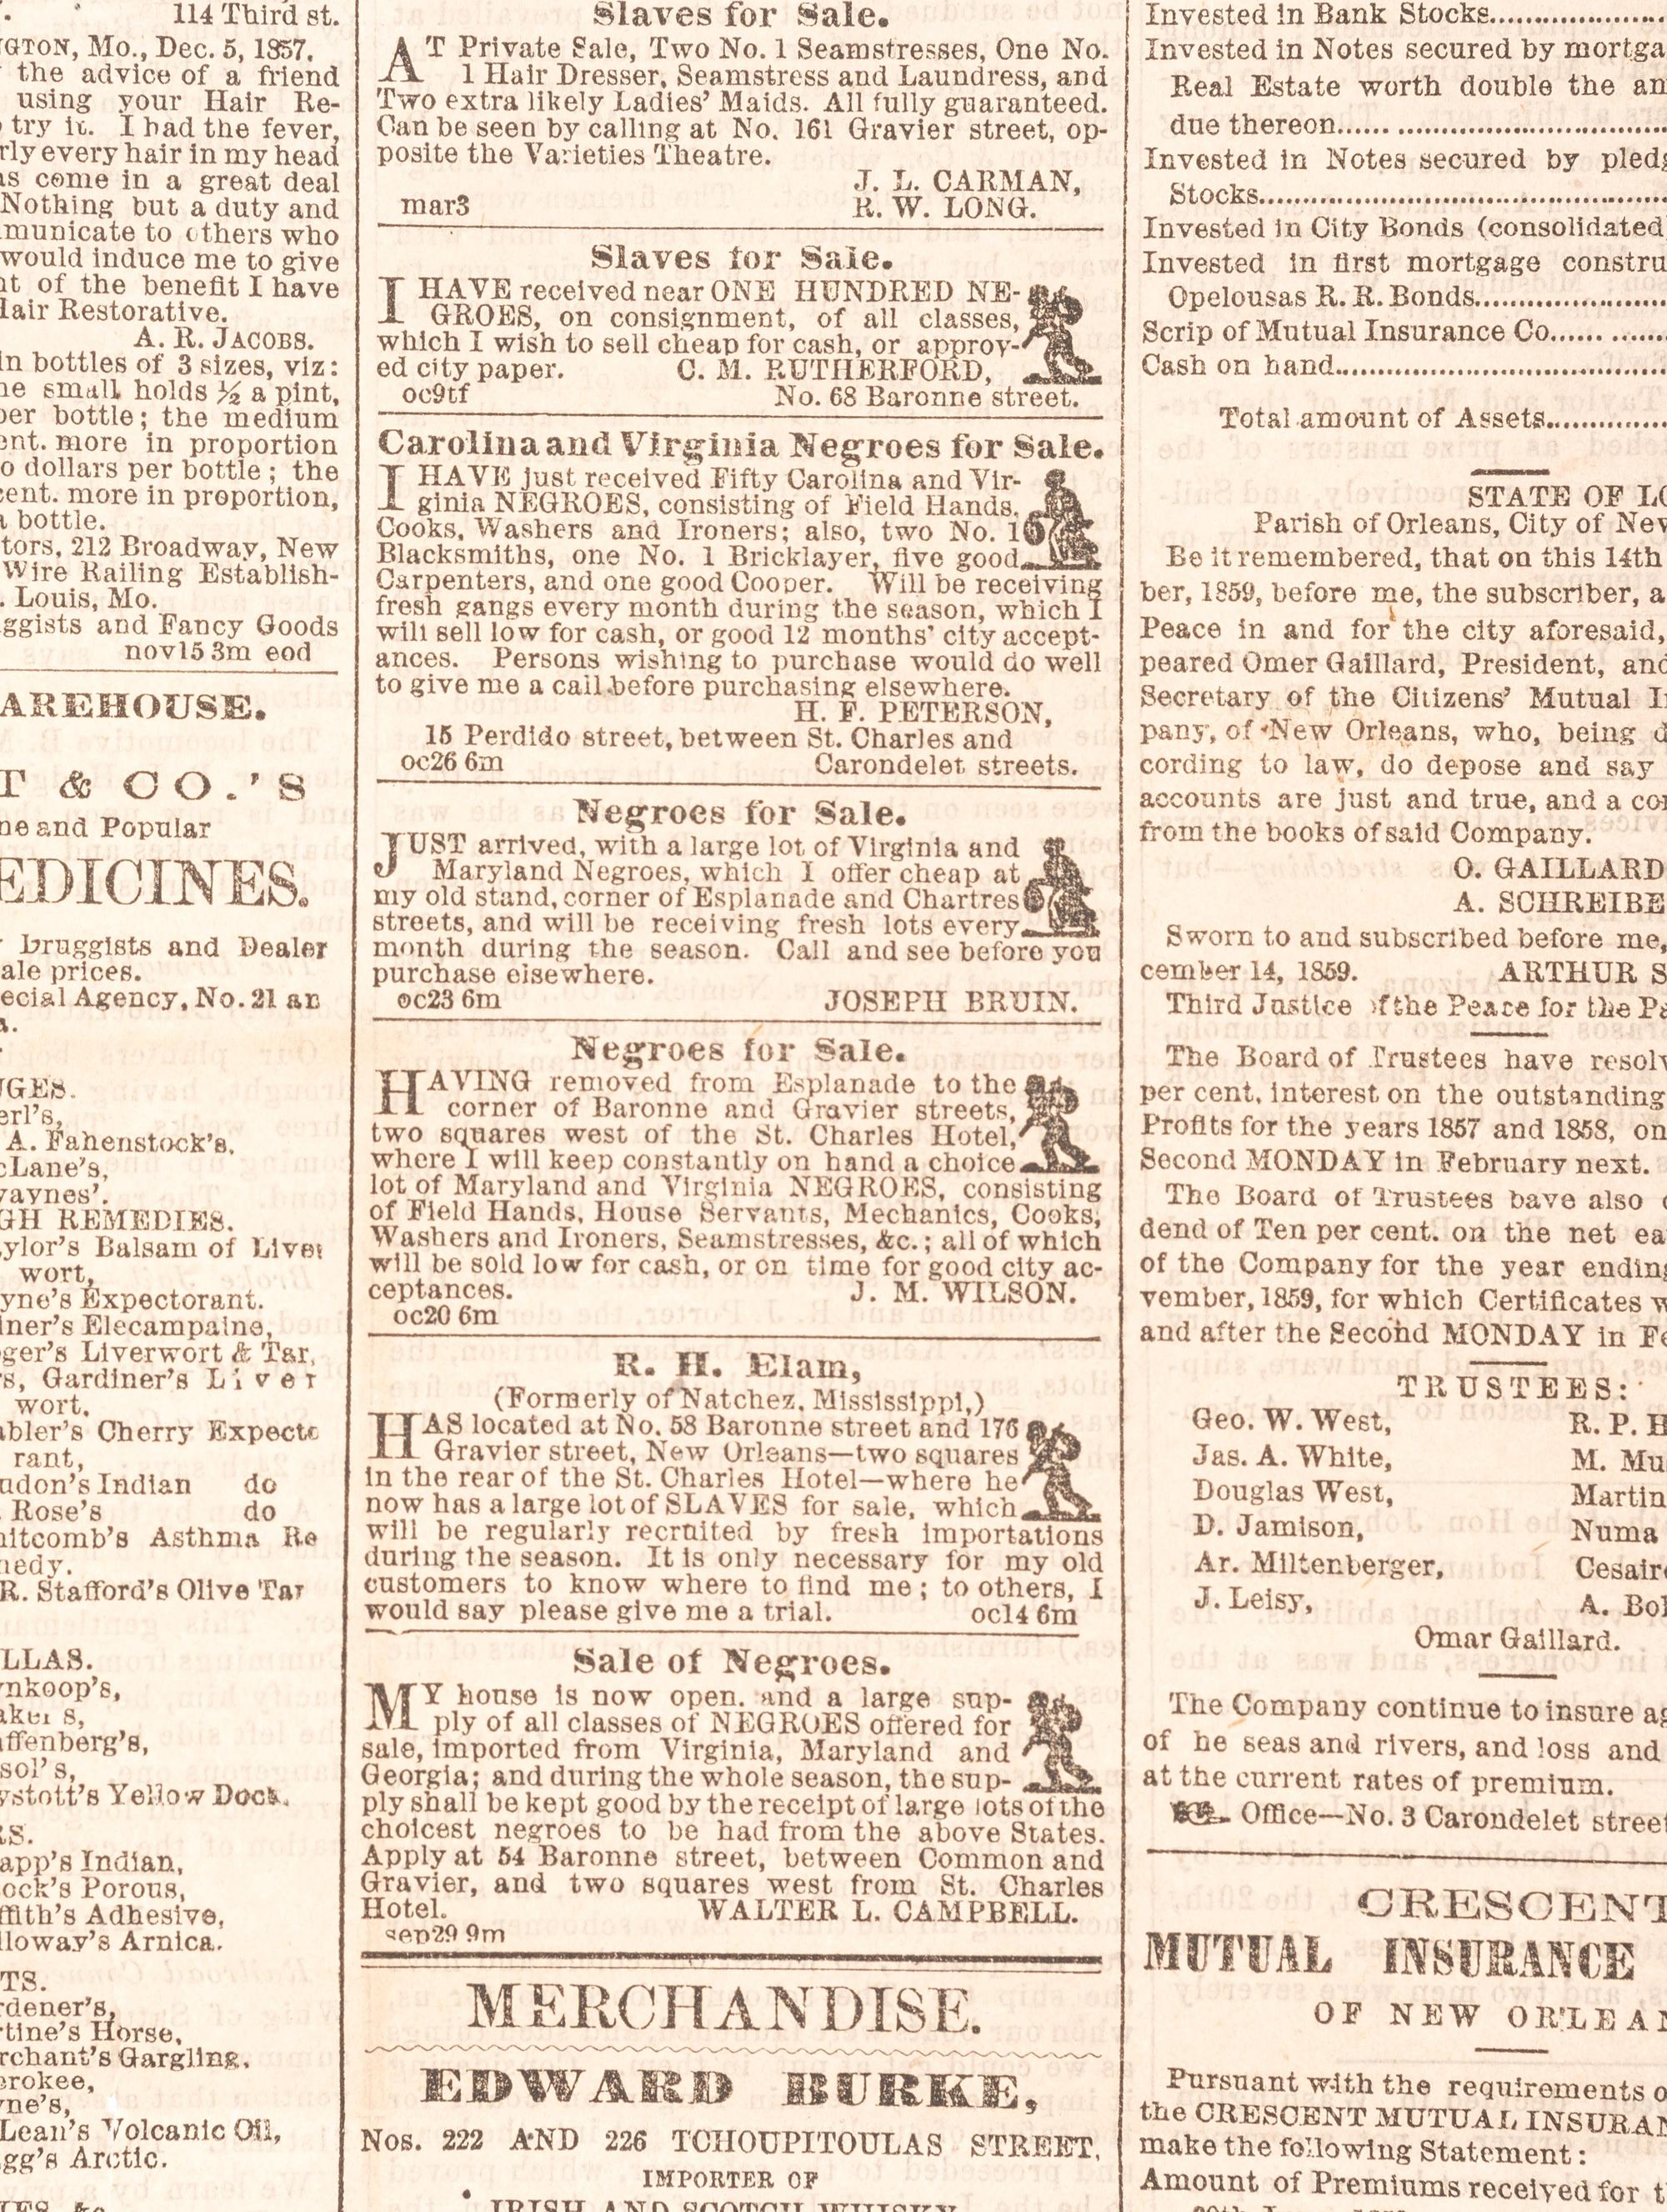 114 Third st.
GTON, Mo., Dec. 5, 1857.
the advice of a friend
using your Hair Re-
try it. I had the fever,
rly every hair in my head
as come in a great deal
Nothing but a duty and
municate to others who
would induce me to give
nt of the benefit I have
Hair Restorative.
A. R. JACOBS.
in bottles of 3 sizes, viz:
he small holds ½ a pint,
per bottle; the medium
ent. more in proportion
o dollars per bottle; the
cent. more in proportion,
a bottle.
tors, 212 Broadway, New
Wire Railing Establish-
. Louis, Mo.
ggists and Fancy Goods
nov15 3m eod
AREHOUSE.
T & CO.'S
ne and Popular
EDICINES.
Druggists and Dealer
ale prices.
ecial Agency, No. 21 an
a.
UGES.
erl's,
A. Fahenstock's,
cLane's,
waynes'.
GH REMEDIES.
aylor's Balsam of Liver
wort,
yne's Expectorant.
iner's Elecampaine,
ger's Liverwort & Tar,
rs, Gardiner's Liver
wort.
abler's Cherry Expecto
rant,
udon's Indian do
Rose's do
hitcomb's Asthma Re
nedy.
R. Stafford's Olive Tar
LLAS.
ynkoop's,
aker s,
affenberg's,
sol's,
ystott's Yellow Dock.
RS.
app's Indian,
ock's Porous,
ffith's Adhesive,
lloway's Arnica.
TS.
rdener's,
rtine's Horse,
rchant's Gargling,
erokee,
yne's,
Lean's Volcanic Oil,
gg's Arctic.
Slaves for Sale.
AT Private Sale, Two No. 1 Seamstresses, One No.
1 Hair Dresser, Seamstress and Laundress, and
Two extra likely Ladies' Maids. All fully guaranteed.
Can be seen by calling at No. 161 Gravier street, op-
posite the Varieties Theatre.
J. L. CARMAN,
mar3 R. W. LONG.
Slaves for Sale.
I HAVE received near ONE HUNDRED NE-
GROES, on consignment, of all classes,
which I wish to sell cheap for cash, or approv-
ed city paper. C. M. RUTHERFORD,
oc9tf No. 68 Baronne street.
Carolina and Virginia Negroes for Sale.
I HAVE just received Fifty Carolina and Vir-
ginia NEGROES, consisting of Field Hands,
Cooks, Washers and Ironers; also, two No. 1
Blacksmiths, one No. 1 Bricklayer, five good
Carpenters, and one good Cooper. Will be receiving
fresh gangs every month during the season, which I
will sell low for cash, or good 12 months' city accept-
ances. Persons wishing to purchase would do well
to give me a call before purchasing elsewhere.
H. F. PETERSON,
15 Perdido street, between St. Charles and
oc26 6m Carondelet streets.
Negroes for Sale.
JUST arrived, with a large lot of Virginia and
Maryland Negroes, which I offer cheap at
my old stand, corner of Esplanade and Chartres
streets, and will be receiving fresh lots every
month during the season. Call and see before you
purchase elsewhere.
oc23 6m JOSEPH BRUIN.
Negroes for Sale.
HAVING removed from Esplanade to the
corner of Baronne and Gravier streets,
two squares west of the St. Charles Hotel,
where I will keep constantly on hand a choice
lot of Maryland and Virginia NEGROES, consisting
of Field Hands, House Servants, Mechanics, Cooks,
Washers and Ironers, Seamstresses, &c.; all of which
will be sold low for cash, or on time for good city ac-
ceptances. J. M. WILSON.
oc20 6m
R. H. Elam,
(Formerly of Natchez, Mississippi,)
HAS located at No. 58 Baronne street and 176
Gravier street, New Orleans—two squares
in the rear of the St. Charles Hotel—where he
now has a large lot of SLAVES for sale, which
will be regularly recruited by fresh importations
during the season. It is only necessary for my old
customers to know where to find me; to others, I
would say please give me a trial. oc14 6m
Sale of Negroes.
MY house is now open. and a large sup-
ply of all classes of NEGROES offered for
sale, imported from Virginia, Maryland and
Georgia; and during the whole season, the sup-
ply shall be kept good by the receipt of large lots of the
choicest negroes to be had from the above States.
Apply at 54 Baronne street, between Common and
Gravier, and two squares west from St. Charles
Hotel. WALTER L. CAMPBELL.
sep29 9m
MERCHANDISE.
EDWARD BURKE,
Nos. 222 AND 226 TCHOUPITOULAS STREET,
IMPORTER OF
IRISH AND SCOTCH WHISKY
Invested in Bank Stocks
Invested in Notes secured by mortga
Real Estate worth double the am
due thereon
Invested in Notes secured by pledg
Stocks
Invested in City Bonds (consolidated
Invested in first mortgage constru
Opelousas R. R. Bonds
Scrip of Mutual Insurance Co
Cash on hand
Total amount of Assets
STATE OF LO
Parish of Orleans, City of New
Be it remembered, that on this 14th
ber, 1859, before me, the subscriber, a
Peace in and for the city aforesaid,
peared Omer Gaillard, President, and
Secretary of the Citizens' Mutual I
pany, of New Orleans, who, being d
cording to law, do depose and say
accounts are just and true, and a co
from the books of said Company.
O. GAILLARD
A. SCHREIBE
Sworn to and subscribed before me,
cember 14, 1859. ARTHUR S
Third Justice of the Peace for the Pa
The Board of Trustees have resolv
per cent. interest on the outstanding
Profits for the years 1857 and 1858, on
Second MONDAY in February next.
The Board of Trustees have also d
dend of Ten per cent. on the net ea
of the Company for the year ending
vember, 1859, for which Certificates w
and after the Second MONDAY in Fe
TRUSTEES:
Geo. W. West, R. P. H
Jas. A. White, M. Mu
Douglas West, Martin
D. Jamison, Numa
Ar. Miltenberger, Cesaire
J. Leisy, A. Bo
Omar Gaillard.
The Company continue to insure ag
of he seas and rivers, and loss and
at the current rates of premium.
Office—No. 3 Carondelet street
CRESCENT
MUTUAL INSURANCE
OF NEW ORLEAN
Pursuant with the requirements o
the CRESCENT MUTUAL INSURAN
make the following Statement:
Amount of Premiums received for t